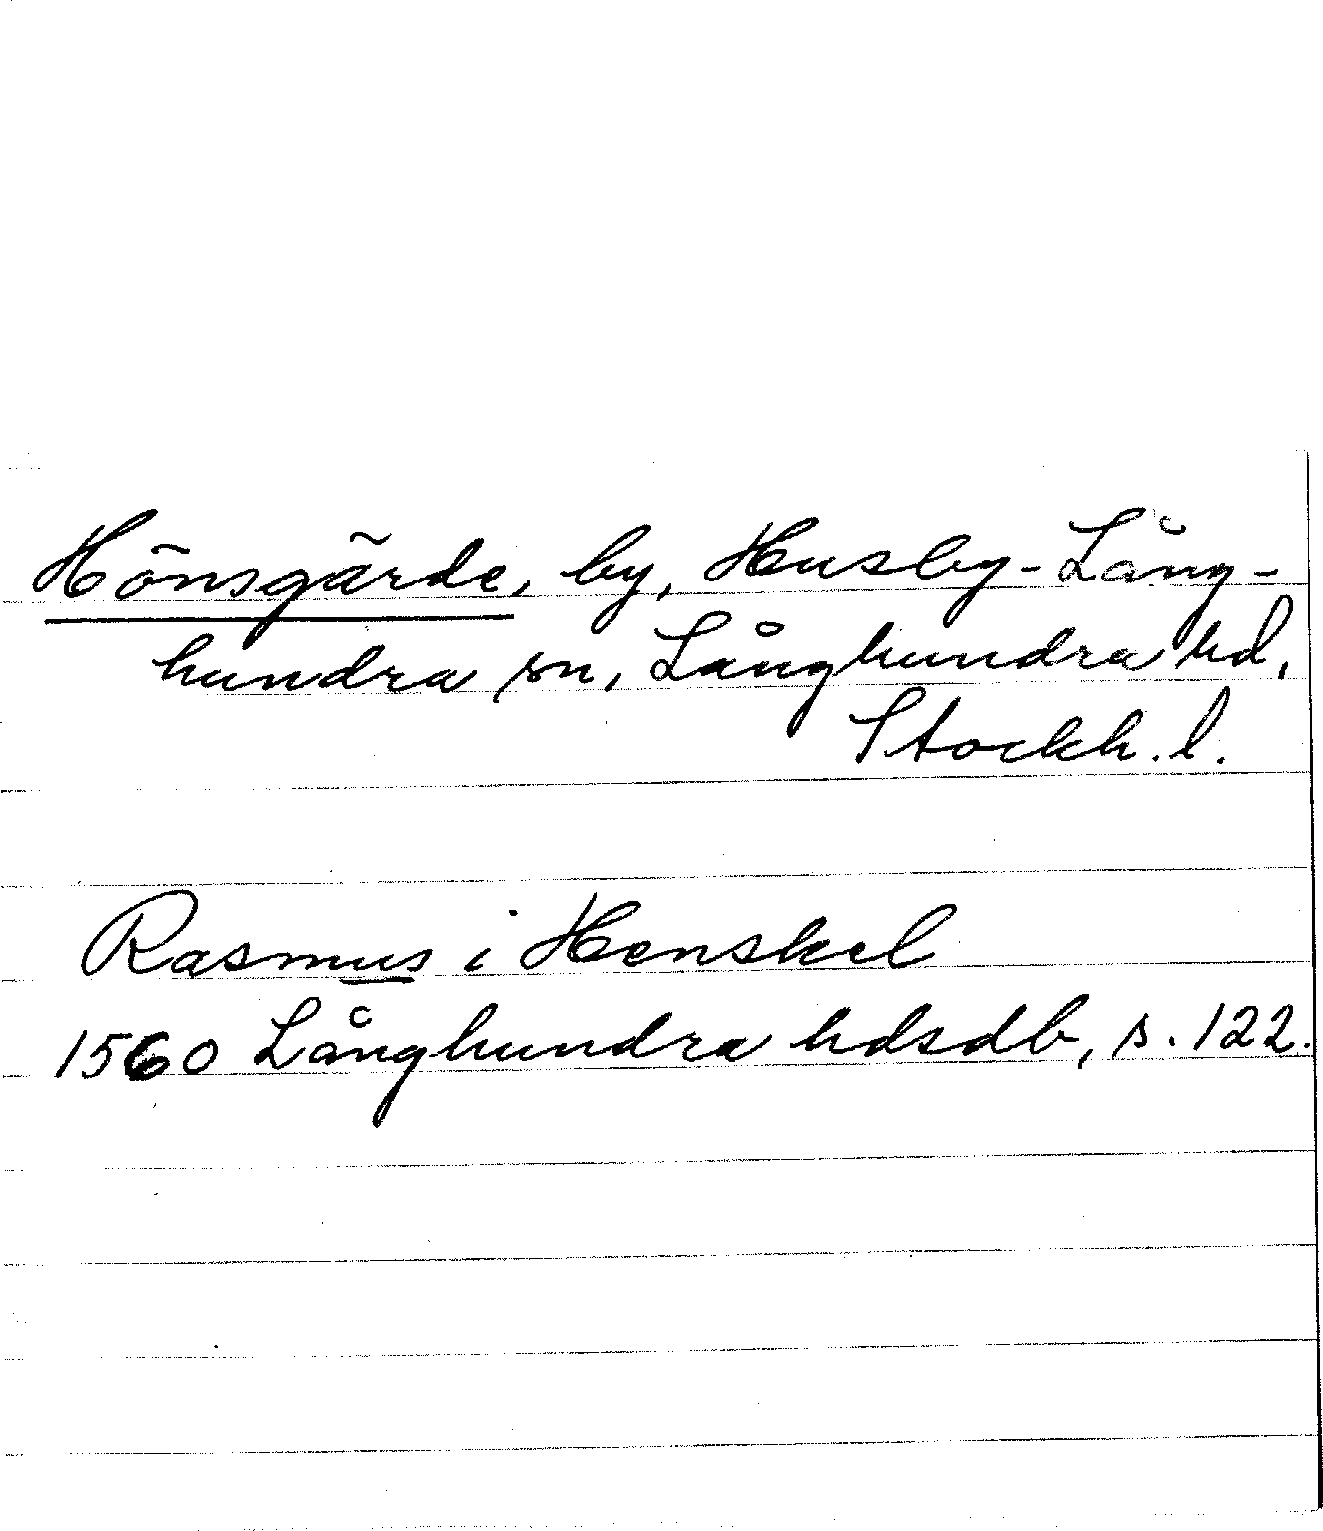 Hönsgärde, by, Husby-Lång-
hundra sn, Långhundra hd,
Stockh. l.
Rasmus i Henskel
1560 Långhundra hdsdb, s. 122.